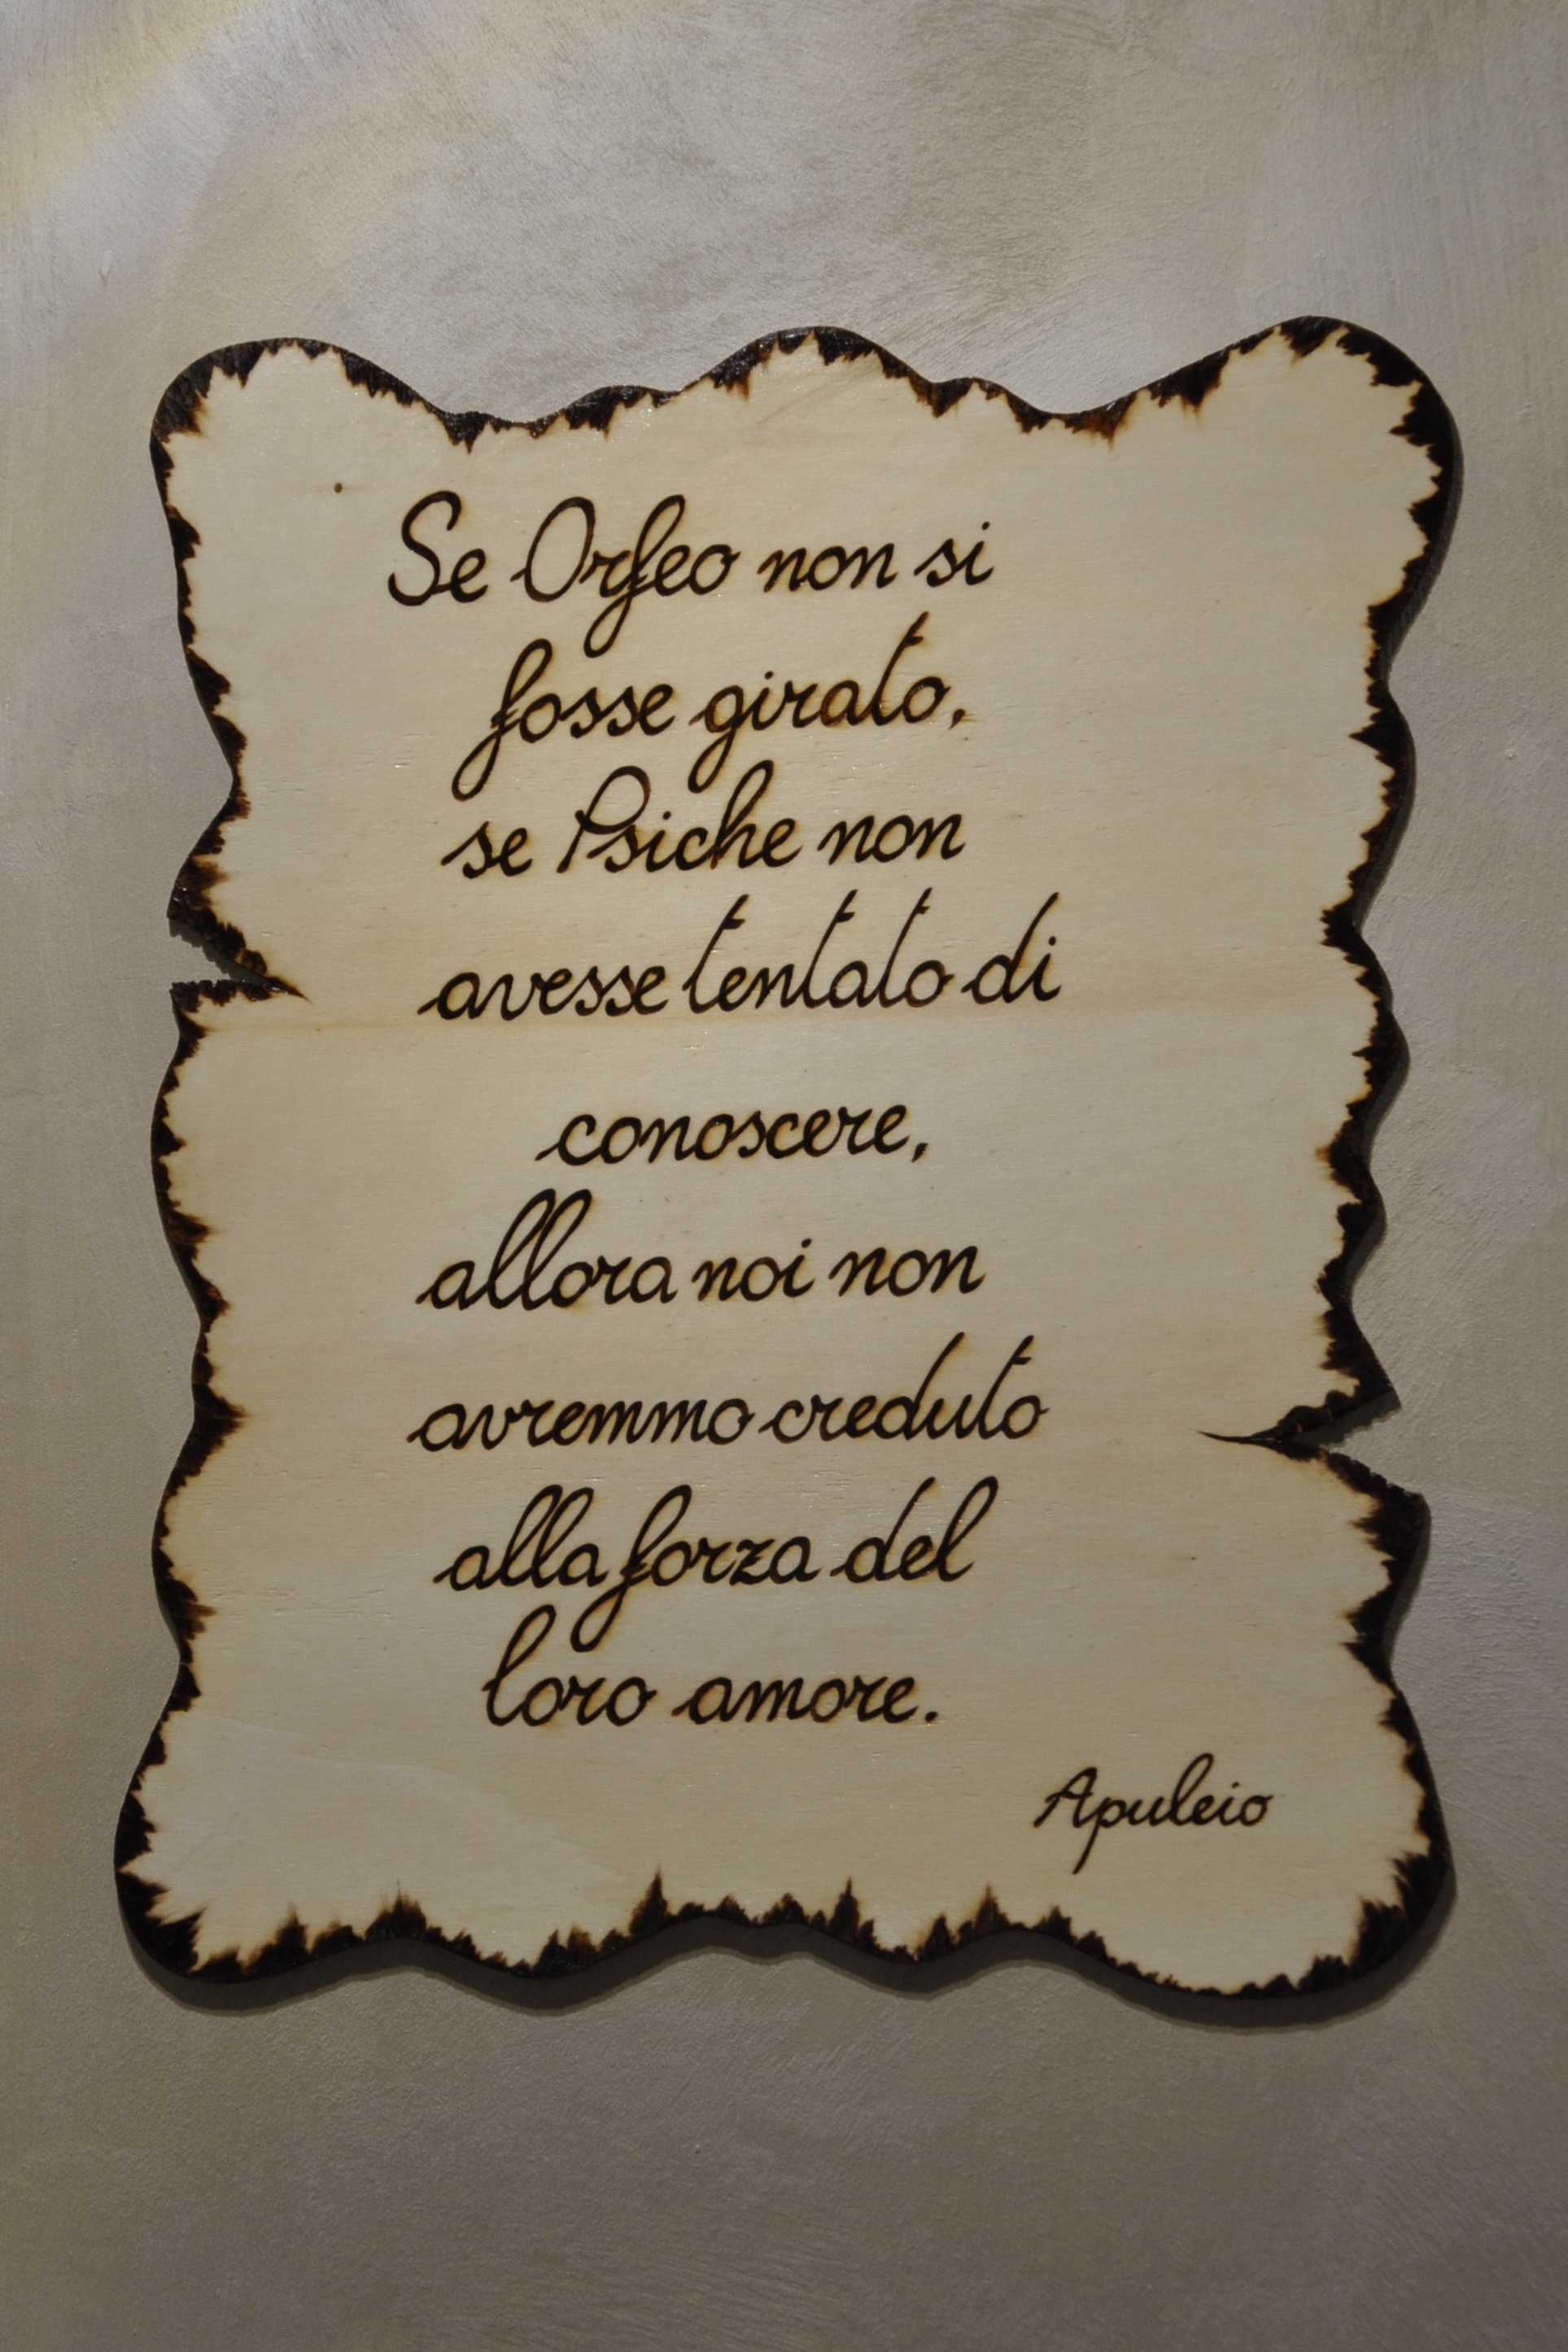 Se Orfeo non si
fosse girato,
se Psiche non
avesse tentato di
conoscere,
allora noi non
avremmo creduto
alla forza del
loro amore.
Apuleio